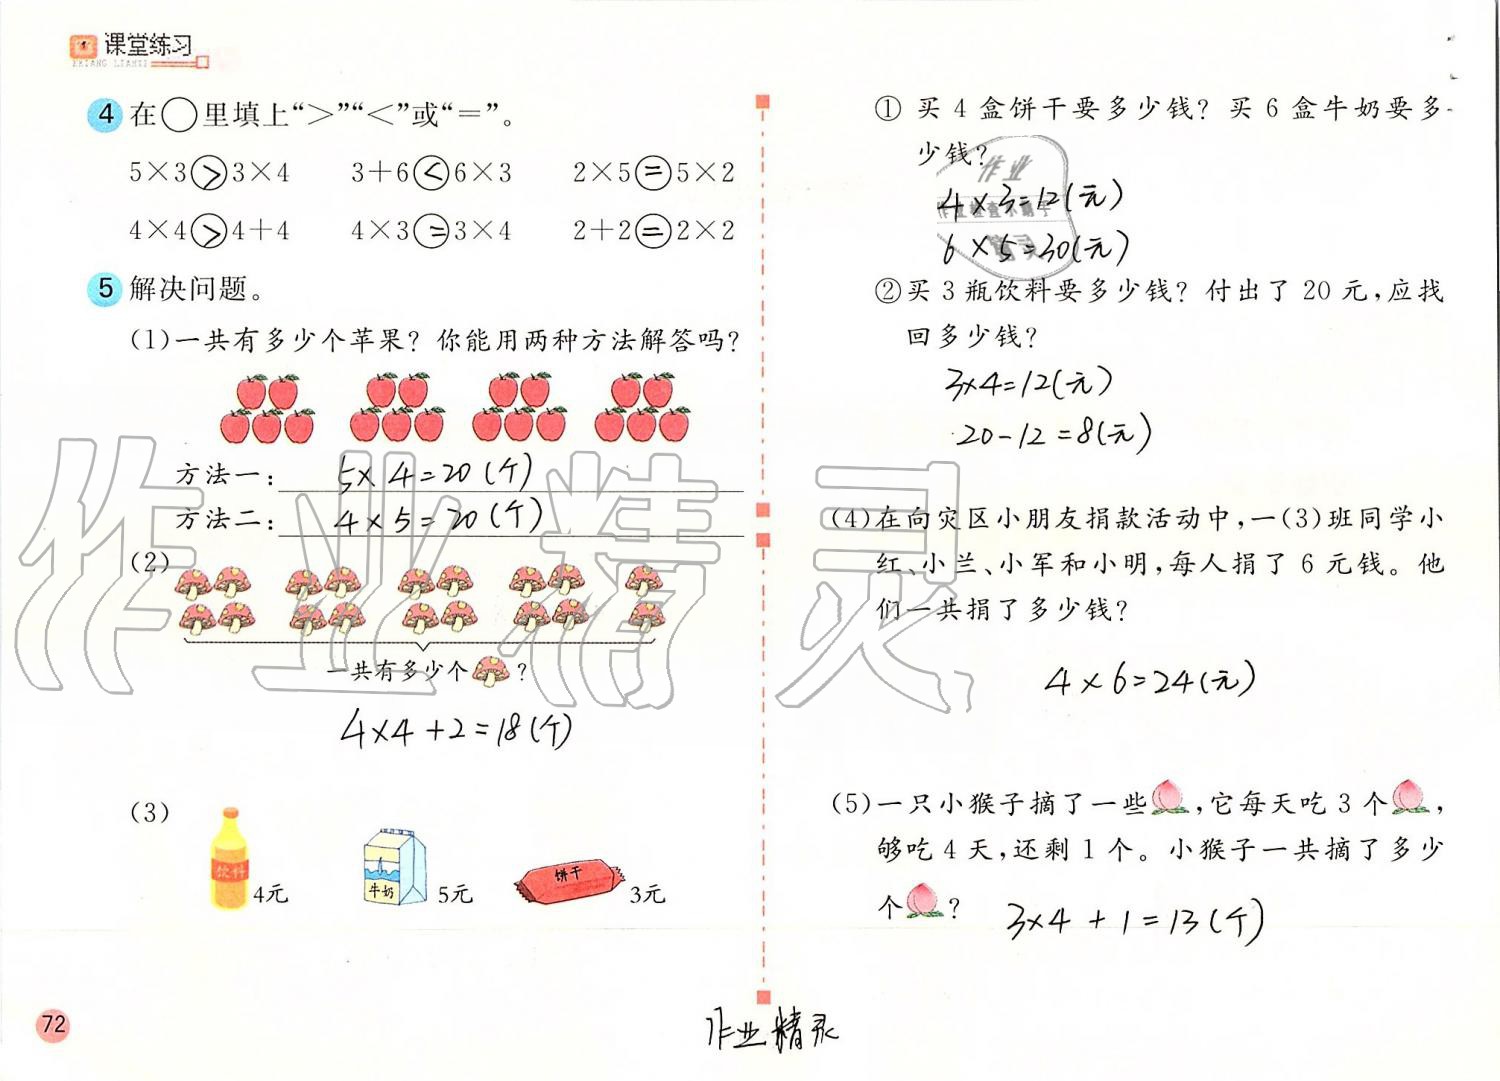 课堂练习
KETANG LIANXI
4 在○里填上“>”“<”或“=”。
5×3>3×4 3+6<6×3 2×5=5×2
4×4>4+4 4×3=3×4 2+2=2×2
5 解决问题。
(1)一共有多少个苹果? 你能用两种方法解答吗?
方法一: 5×4=20(个)
方法二: 4×5=20(个)
(2)
一共有多少个?
4×4+2=18(个)
(3)
饮料 4元 牛奶 5元 饼干 3元
72
① 买4盒饼干要多少钱? 买6盒牛奶要多
少钱?
4×3=12(元)
6×5=30(元)
②买3瓶饮料要多少钱? 付出了20元,应找
回多少钱?
3×4=12(元)
20-12=8(元)
(4)在向灾区小朋友捐款活动中,一(3)班同学小
红、小兰、小军和小明,每人捐了6元钱。他
们一共捐了多少钱?
4×6=24(元)
(5)一只小猴子摘了一些,它每天吃3个,
够吃4天,还剩1个。小猴子一共摘了多少
个?
3×4+1=13(个)
作业精灵
作业精灵
作业